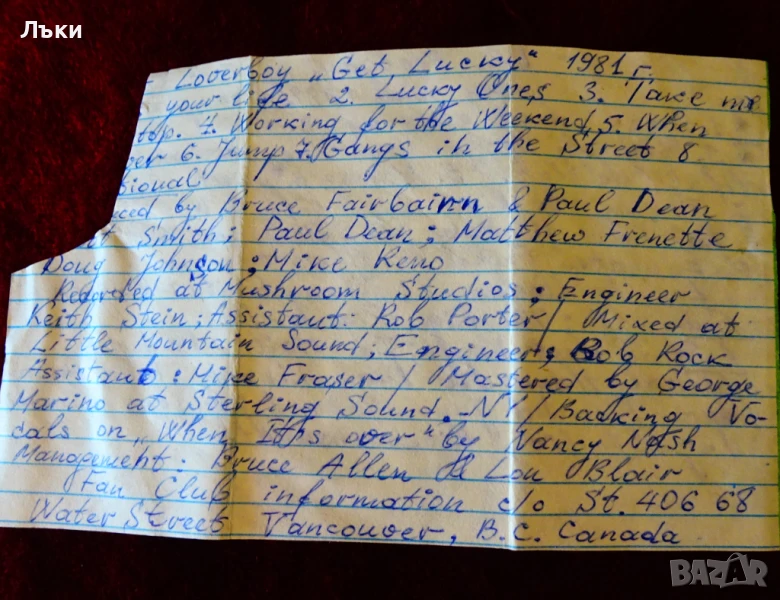 Лъки
Loverboy „Get Lucky" 1981 г.
your life 2. Lucky Ones 3. Take me
top. 4. Working for the Weekend 5. When
ver 6. Jump 7. Gangs in the Street 8
sional
uced by Bruce Fairbairn & Paul Dean
tt Smith; Paul Dean; Matthew Frenette
Doug Johnson; Mike Reno
Recorded at Mushroom Studios; Engineer
Keith Stein; Assistant: Rob Porter / Mixed at
Little Mountain Sound; Engineer: Bob Rock
Assistant: Mike Fraser / Mastered by George
Marino at Sterling Sound. NY / Backing Vo-
cals on „When It's over" by Nancy Nash
Management: Bruce Allen & Lou Blair
Fan Club information c/o St. 406 68
Water Street Vancouver, B.C. Canada
BAZAR